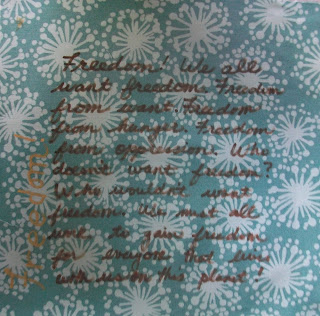 Freedom! We all
want freedom. Freedom
from want. Freedom
from hunger. Freedom
from oppression. Who
doesn't want freedom?
Why wouldn't want
freedom. We must all
work to gain freedom
for everyone that lives
with us on this planet!
Freedom!